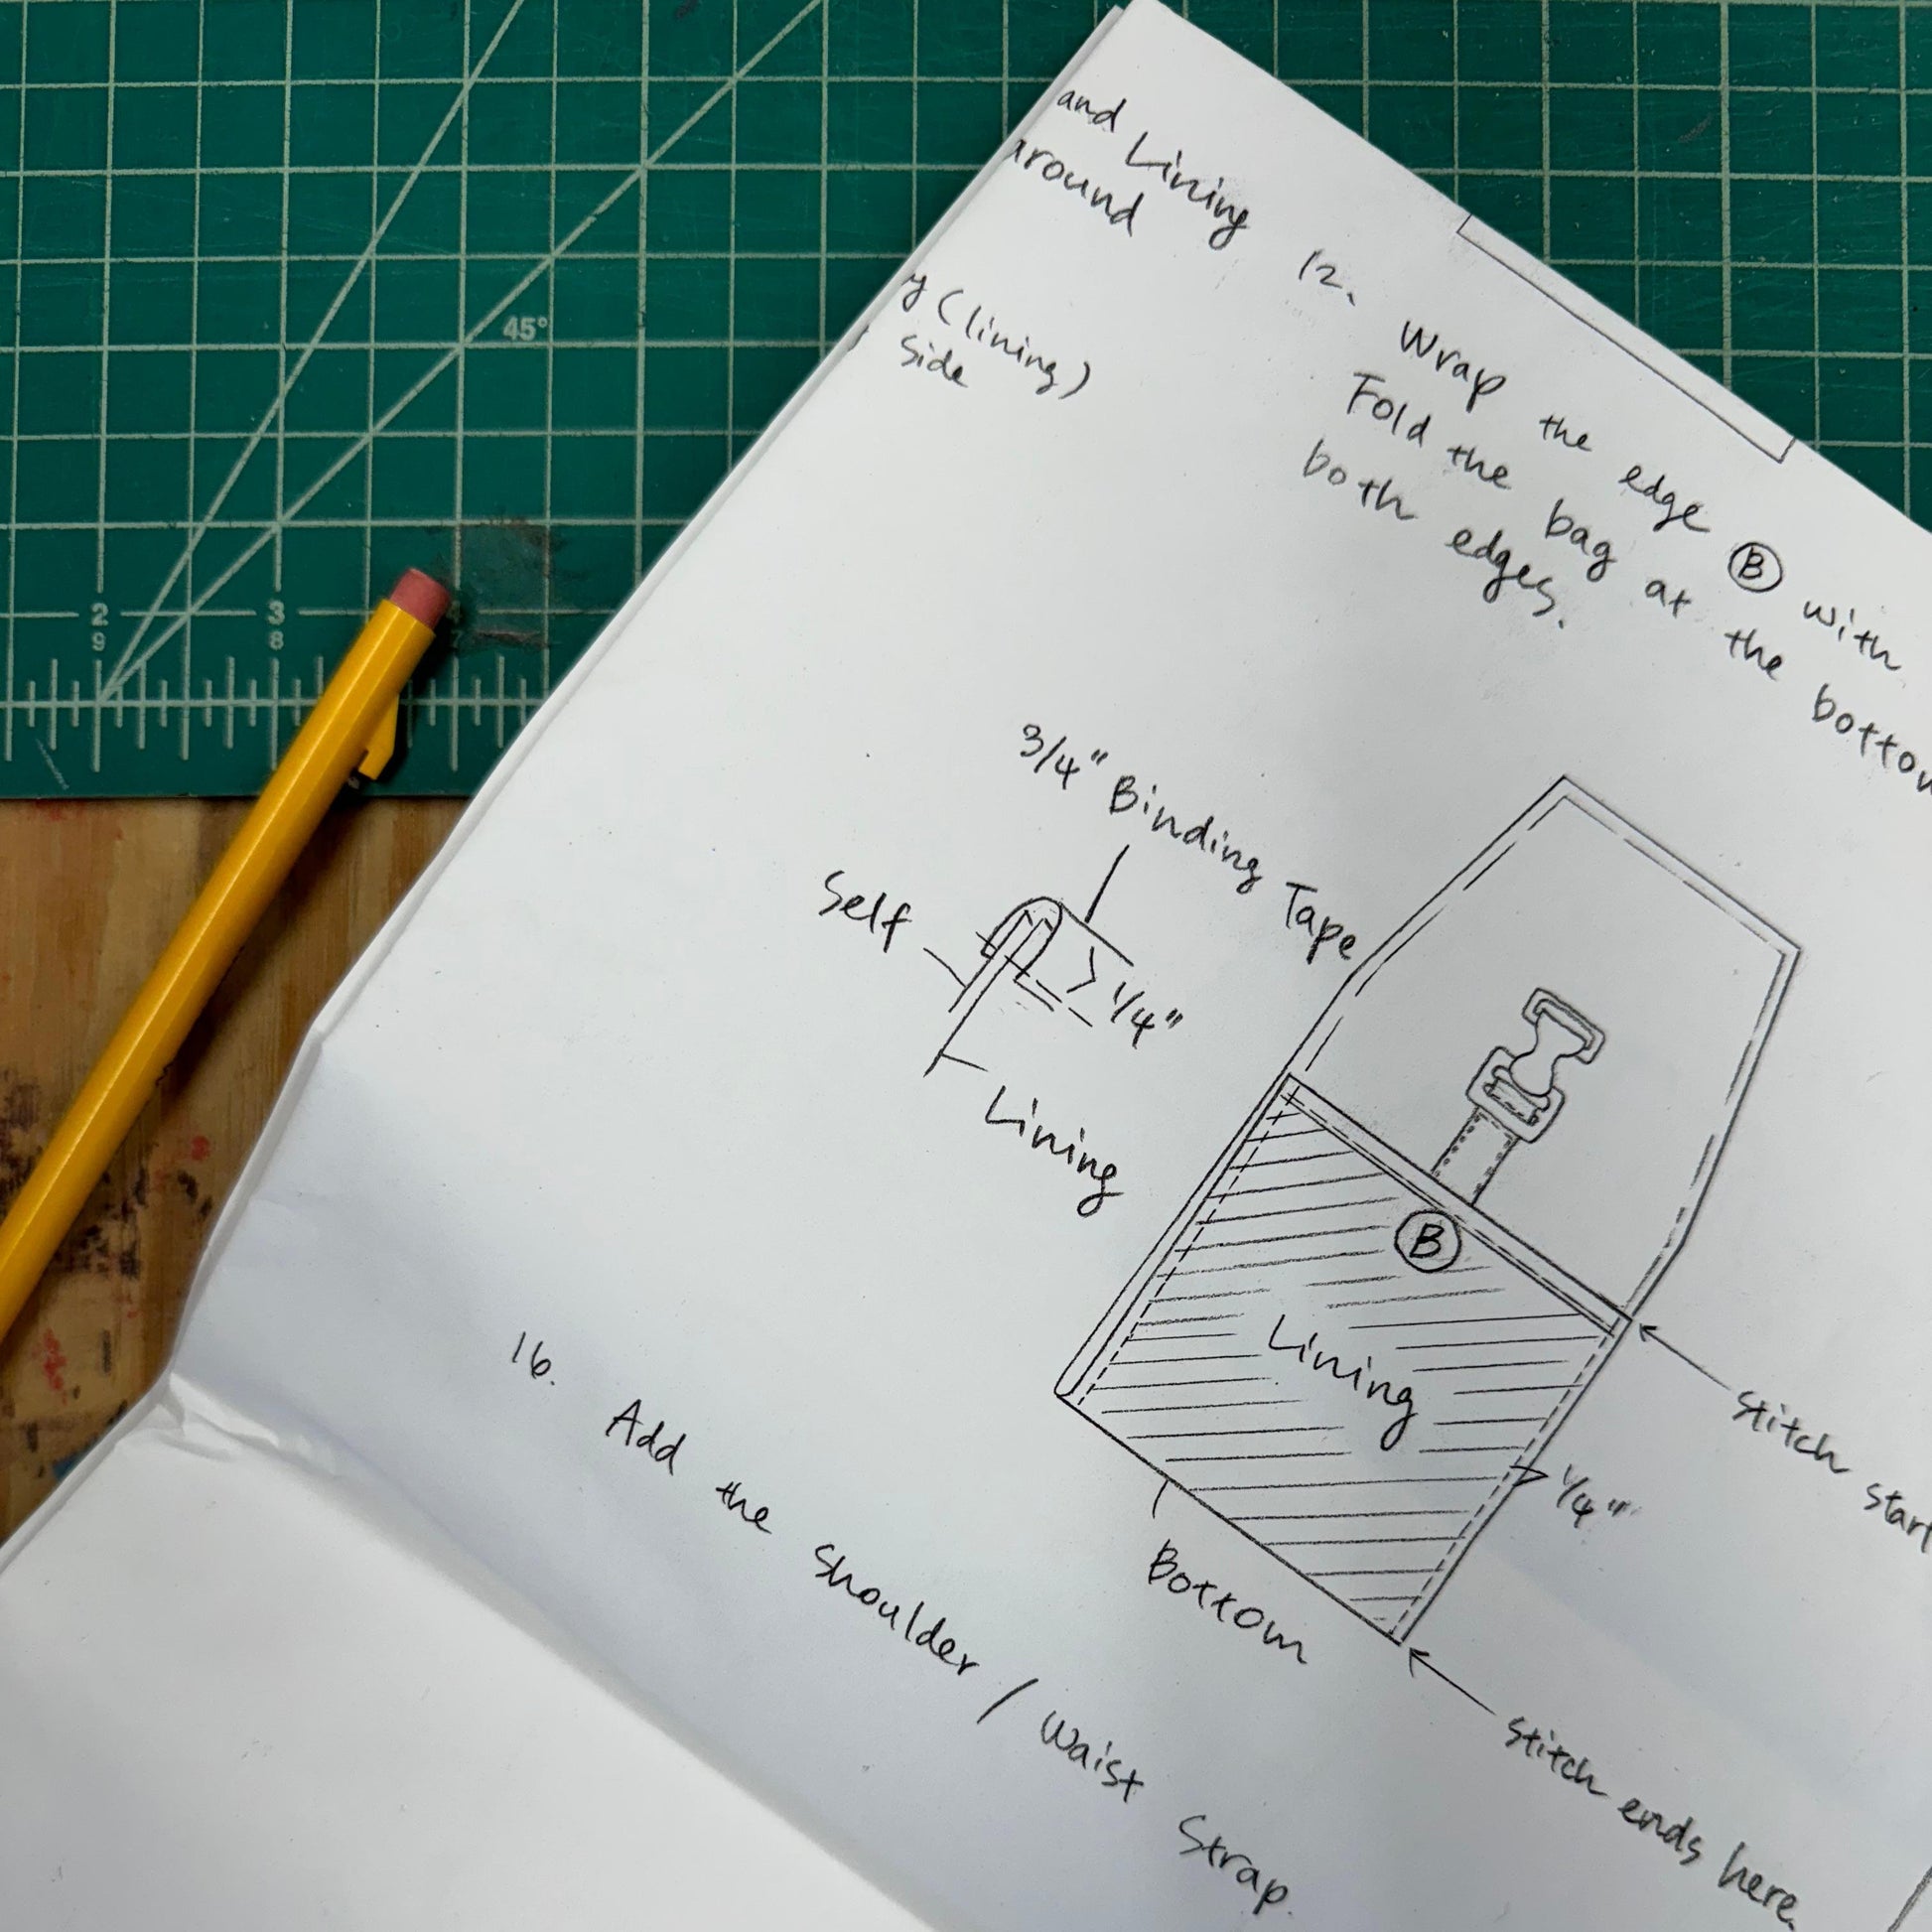 and Lining
around
(lining)
side
12. Wrap the edge Ⓑ with
Fold the bag at the
both edges.
3/4" Binding Tape
Self
1/4"
Lining
Ⓑ
Lining
Stitch
1/4"
Bottom
Stitch ends here.
16. Add the shoulder / Waist Strap.
45°
2
3
9
8
7